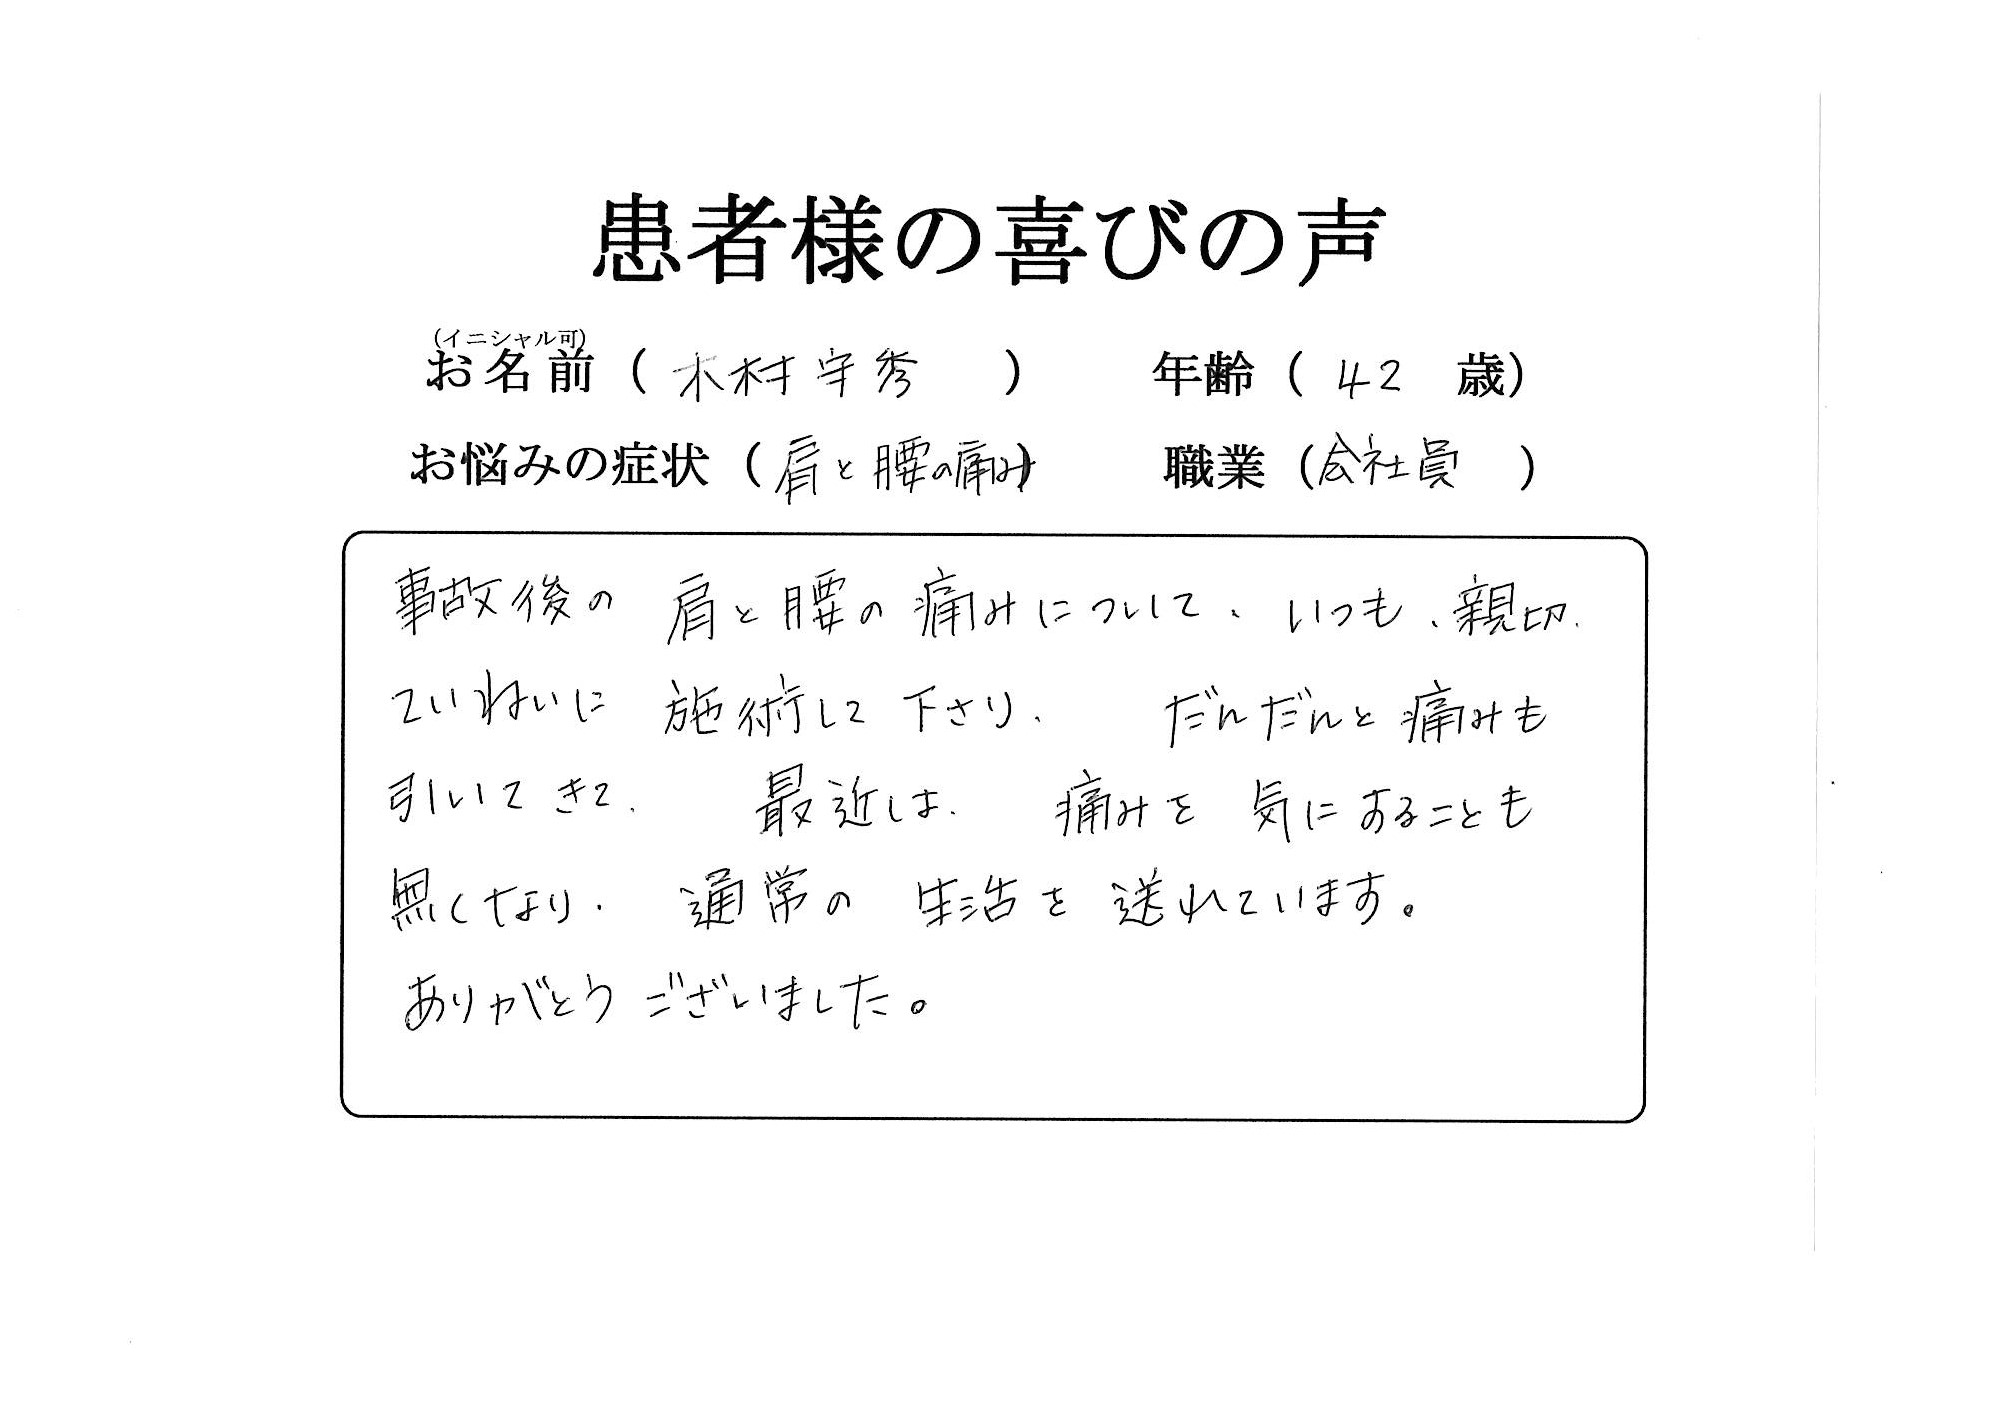 患者様の喜びの声
(イニシャル可)
お名前（木村宇秀）　年齢（42歳）
お悩みの症状（肩と腰の痛み）　職業（会社員）
事故後の 肩と腰の痛みについて、いつも、親切、
ていねいに 施術して下さり、だんだんと痛みも
引いてきて、最近は、痛みを気にすることも
無くなり、通常の 生活を送れています。
ありがとうございました。